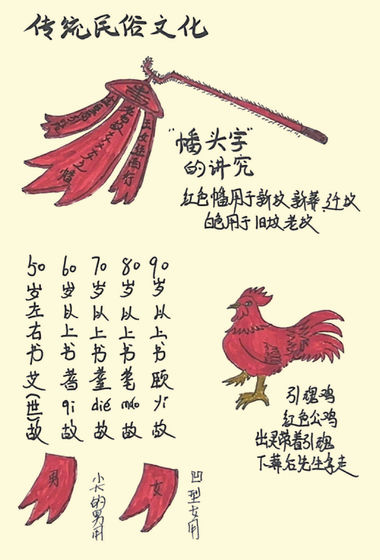 传统民俗文化
"幡头字"
的讲究
红色幡用于新坟新葬、迁坟
白色用于旧坟老坟
50岁左右书艾(世)故
60岁以上书耆qi故
70岁以上书耋dié故
80岁以上书耄mào故
90岁以上书颐yi故
引魂鸡
红色公鸡
出灵带着引魂
下葬后先生拿走
男
小尖的男用
女
凹型女用